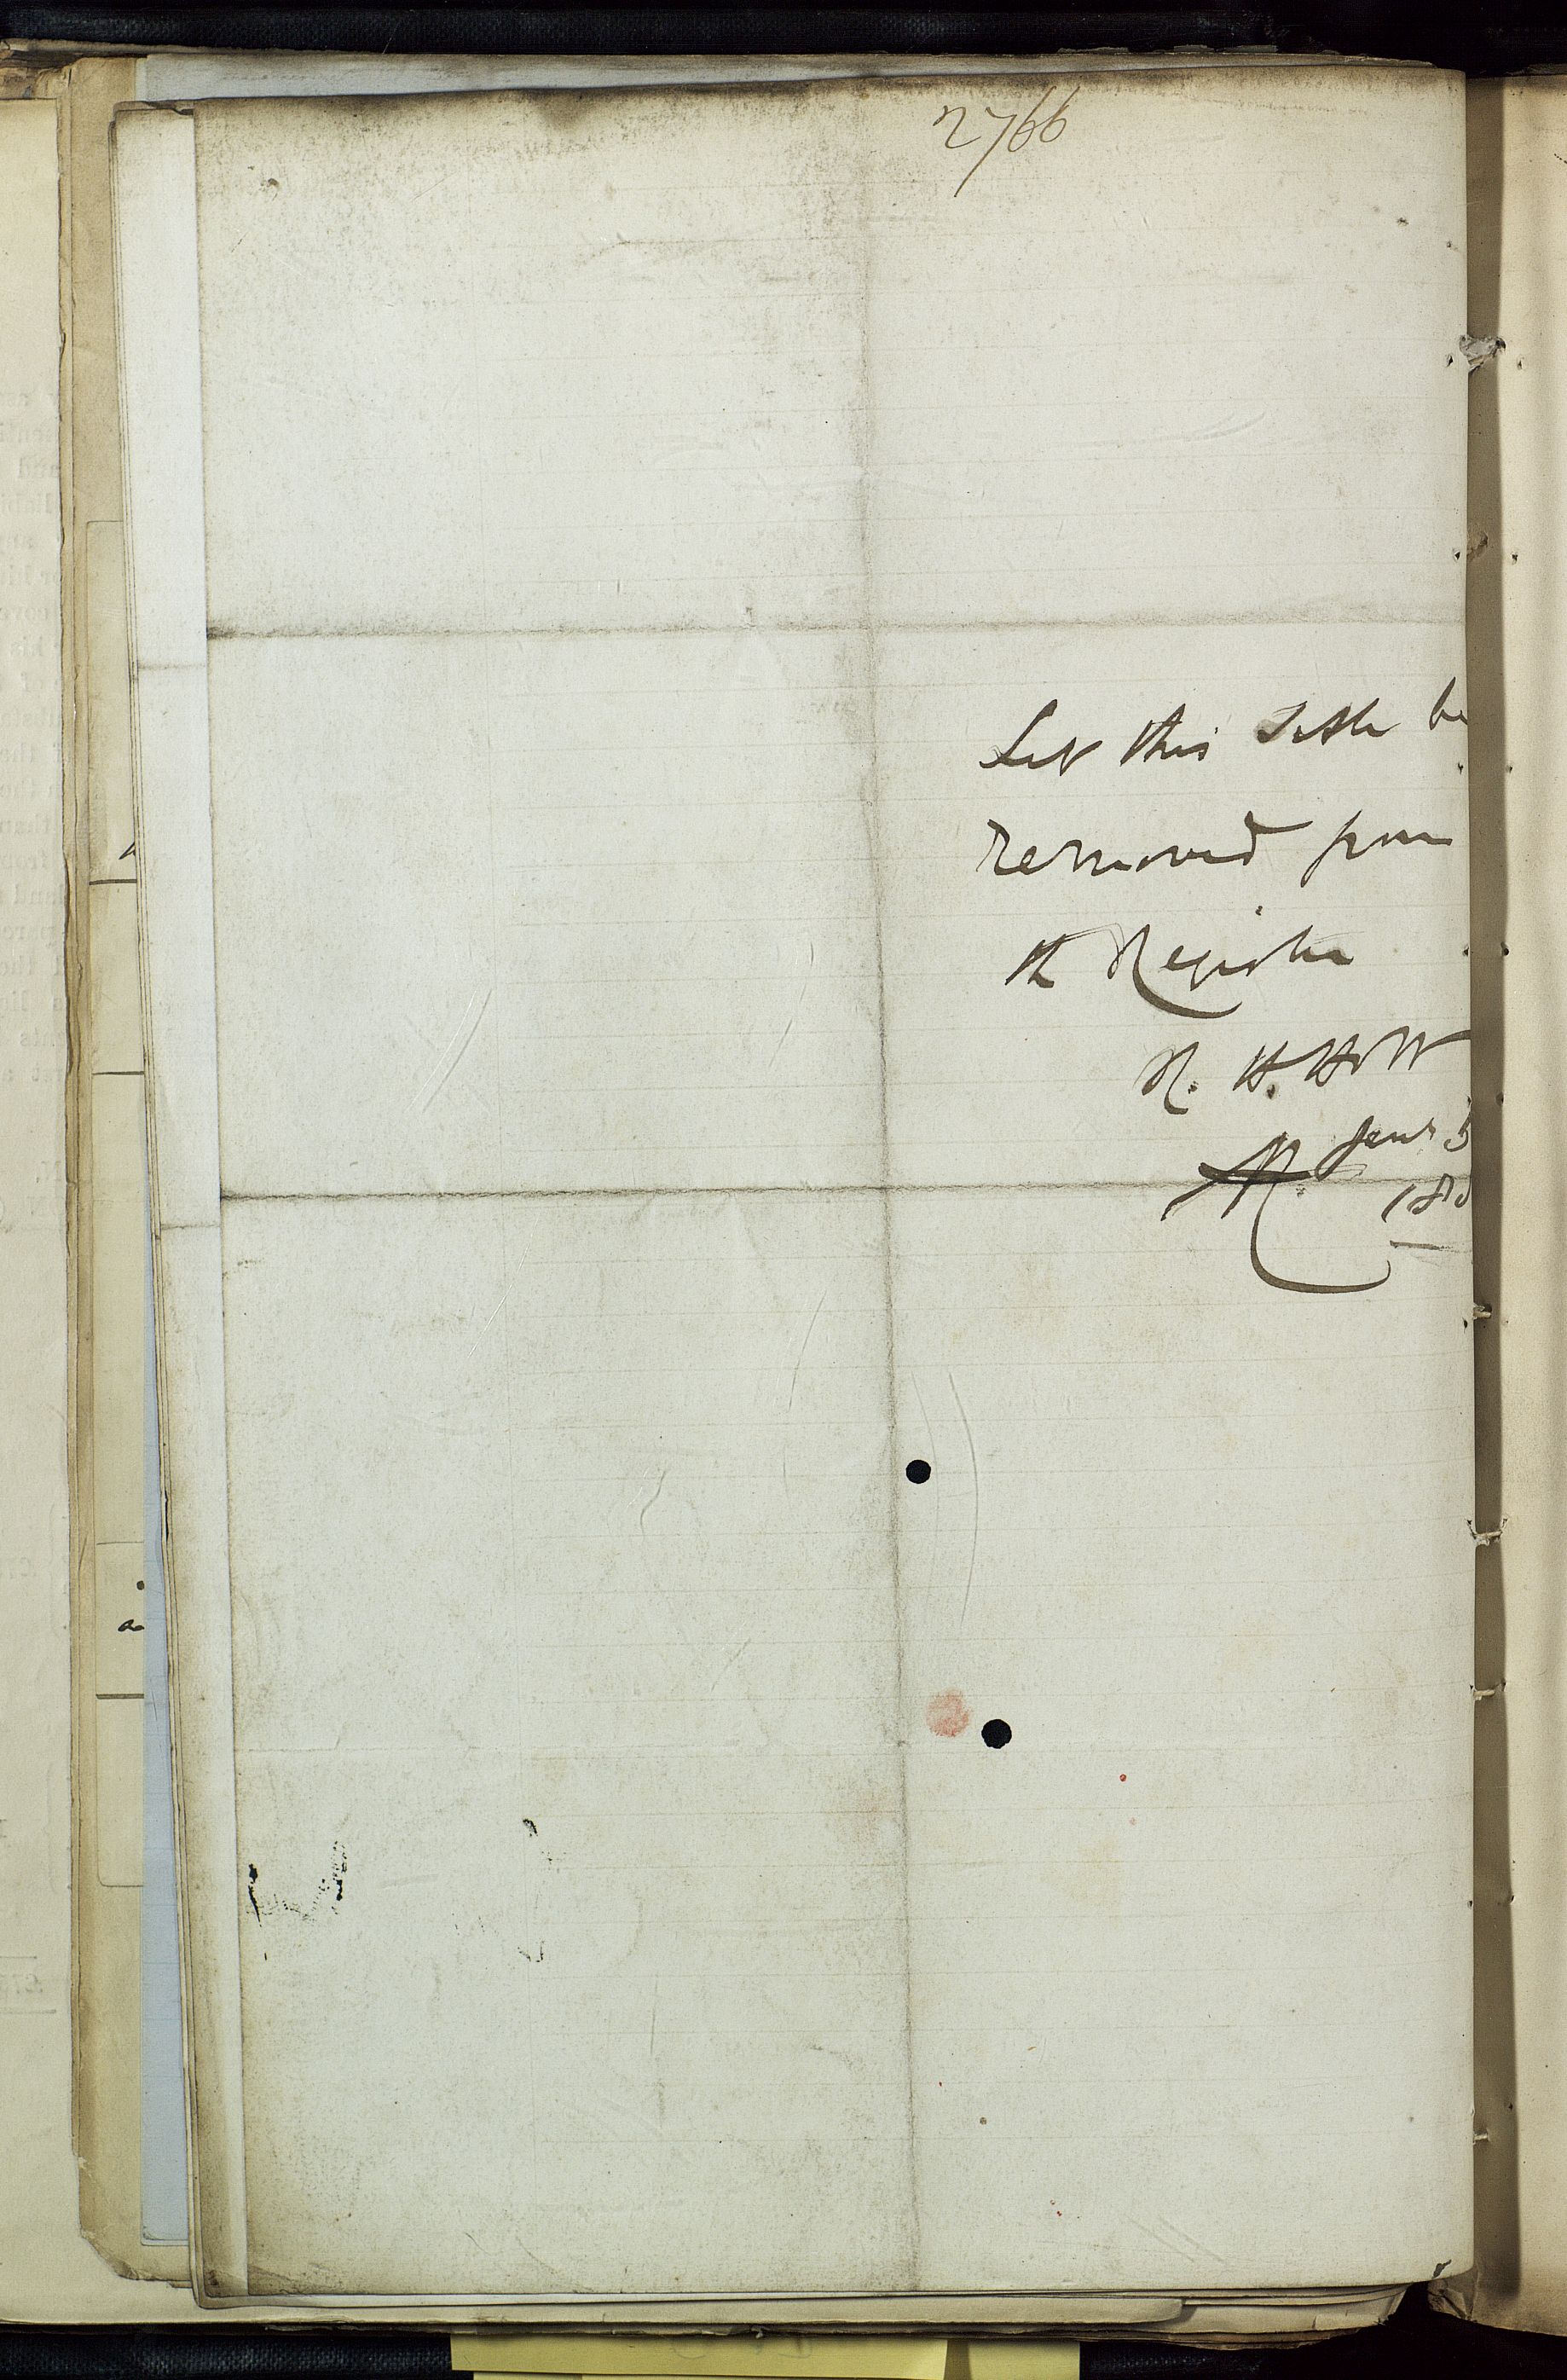 2766
Let this Title be
removed from
the Register
R. H. Holt
Jany 5